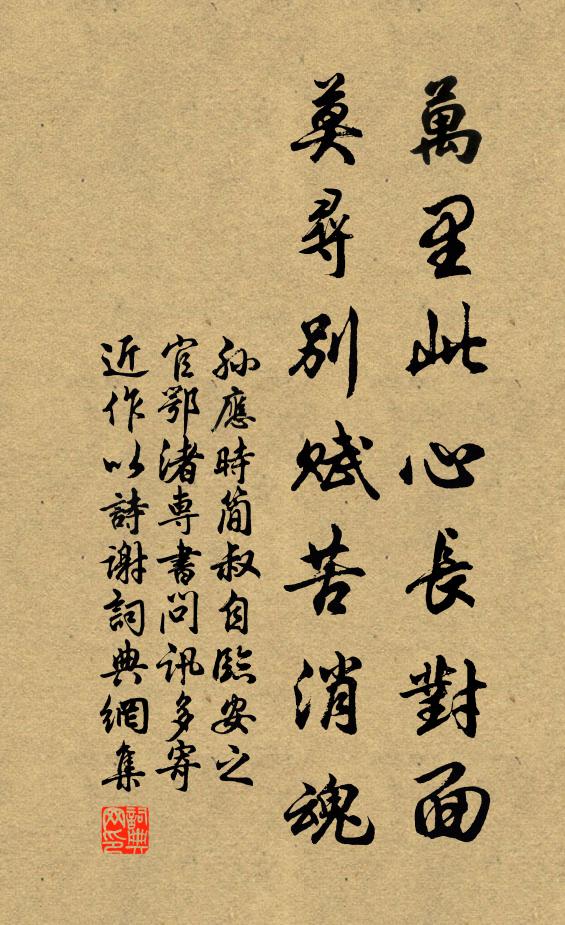 萬里此心長對面
莫尋別賦苦消魂
孫應時簡叔自臨安之
官鄂渚專書問訊多寄
近作以詩謝詞典網集
詞典网印